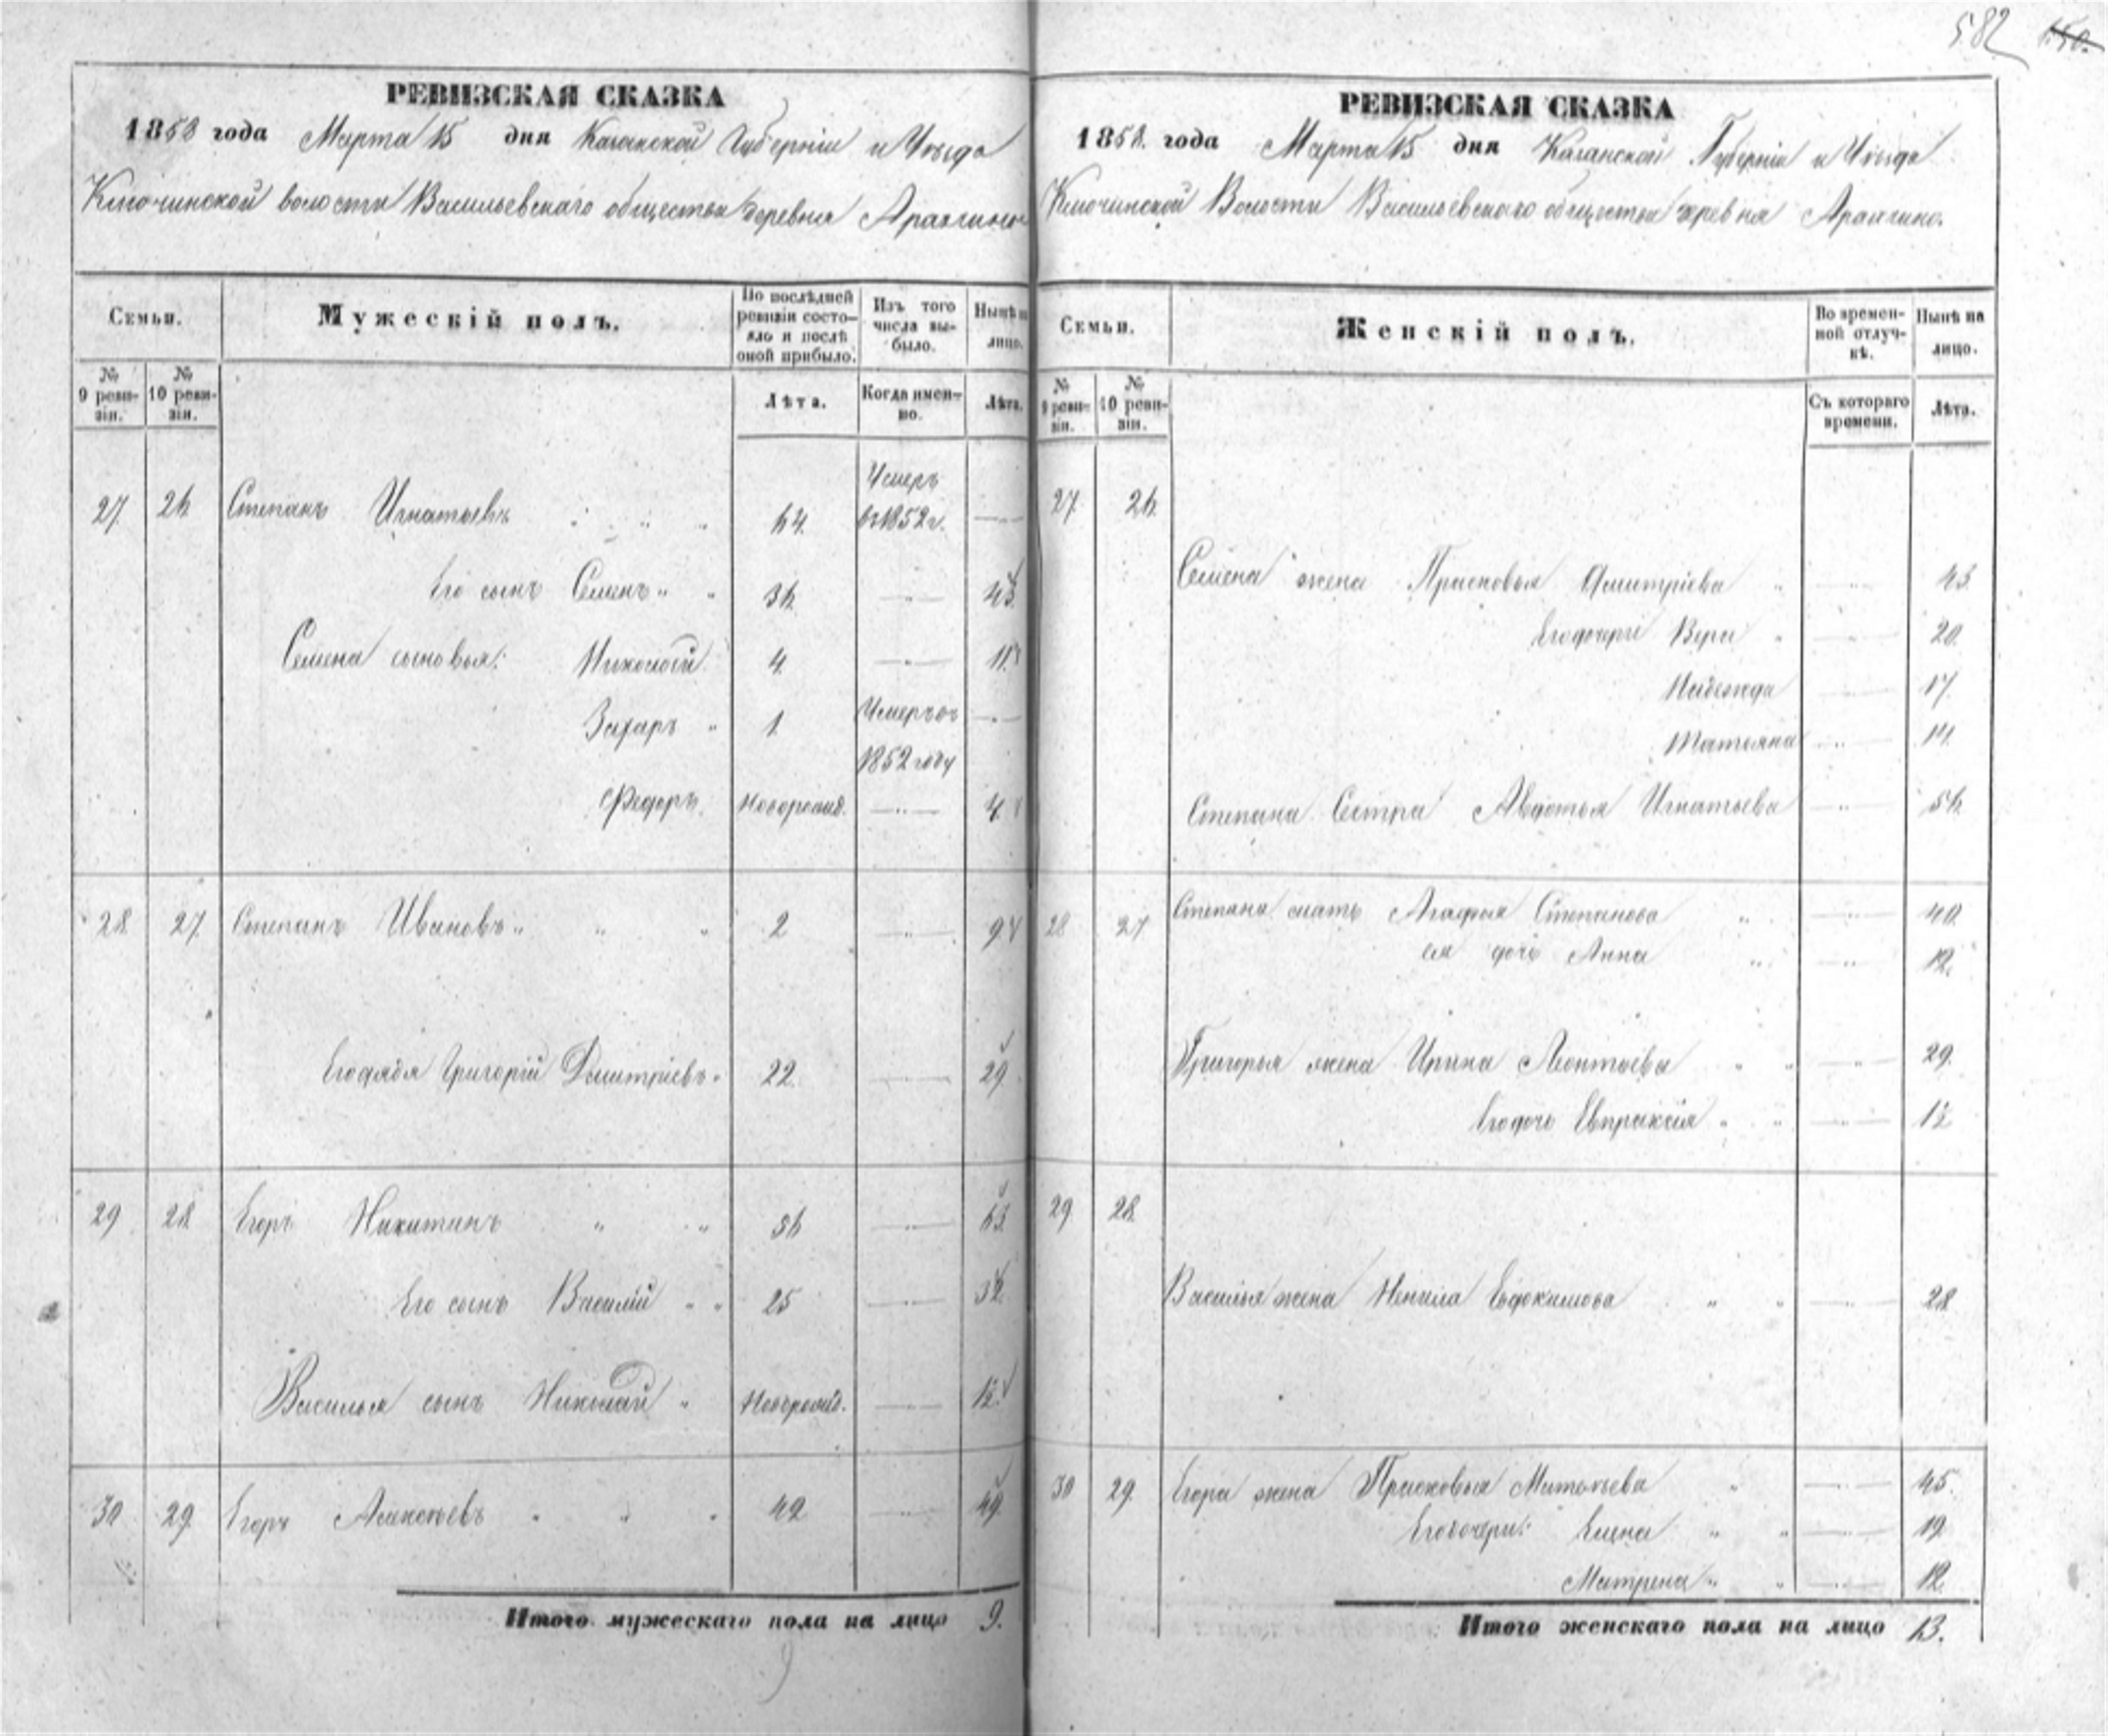 582 150.
РЕВИЗСКАЯ СКАЗКА
1858 года Марта 15 дня Казанской Губерніи и Уѣзда
Ключинской волости Васильевскаго общества деревня
Семьи.
Мужескій полъ.
По послѣдней ревизіи состояло и послѣ оной прибыло.
Изъ того числа выбыло.
Нынѣ на лицо.
№ 9 ревизіи.
№ 10 ревизіи.
Лѣта.
Когда именно.
Лѣта.
27 26 Степанъ Игнатьевъ 64 Умеръ въ 1852 г.
Его сынъ Семенъ 36 43
Семена сыновья: Николай 4 11
Захаръ 1 Умеръ въ 1852 году
Федоръ Новорожд. 4
28 27 Степанъ Ивановъ 2 9
Его дядя Григорій Дмитріевъ 22 29
29 28 Егоръ Никитинъ 56 63
Его сынъ Василій 25 32
Василья сынъ Николай Новорожд.
30 29 Егоръ Алексѣевъ 42 49
Итого мужескаго пола на лицо 9.
9
РЕВИЗСКАЯ СКАЗКА
1858 года Марта 15 дня Казанской Губерніи и Уѣзда
Ключинской Волости Васильевскаго общества деревня
Семьи.
Женскій полъ.
Во временной отлучкѣ.
Нынѣ на лицо.
№ 9 ревизіи.
№ 10 ревизіи.
Съ котораго времени.
Лѣта.
27 26
Семена жена Прасковья Дмитріева 43
Его дочери Вера 20
Надежда 17
Татьяна 14
Степана Сестра Авдотья Игнатьева 56
28 27 Степана мать Агафья Степанова 40
ея дочь Анна 12
Григорья жена Ирина Леонтьева 29
Его дочь Евпраксія
29 28
Василья жена Ненила Евдокимова 28
30 29 Егора жена Прасковья Матвѣева 45
Его дочери: Елена 19
Матрена 12
Итого женскаго пола на лицо 13.